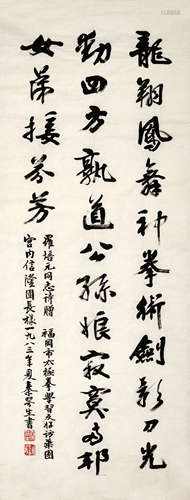 龍翔鳳舞神拳術劍彩刀光
動四方孰道公孫娘寂寞事邦
女弟接芬芳
羅培元同志詩贈 福岡市太極拳學習友好訪華團
宮內信隆團長樣一九八三年夏秦咢生書